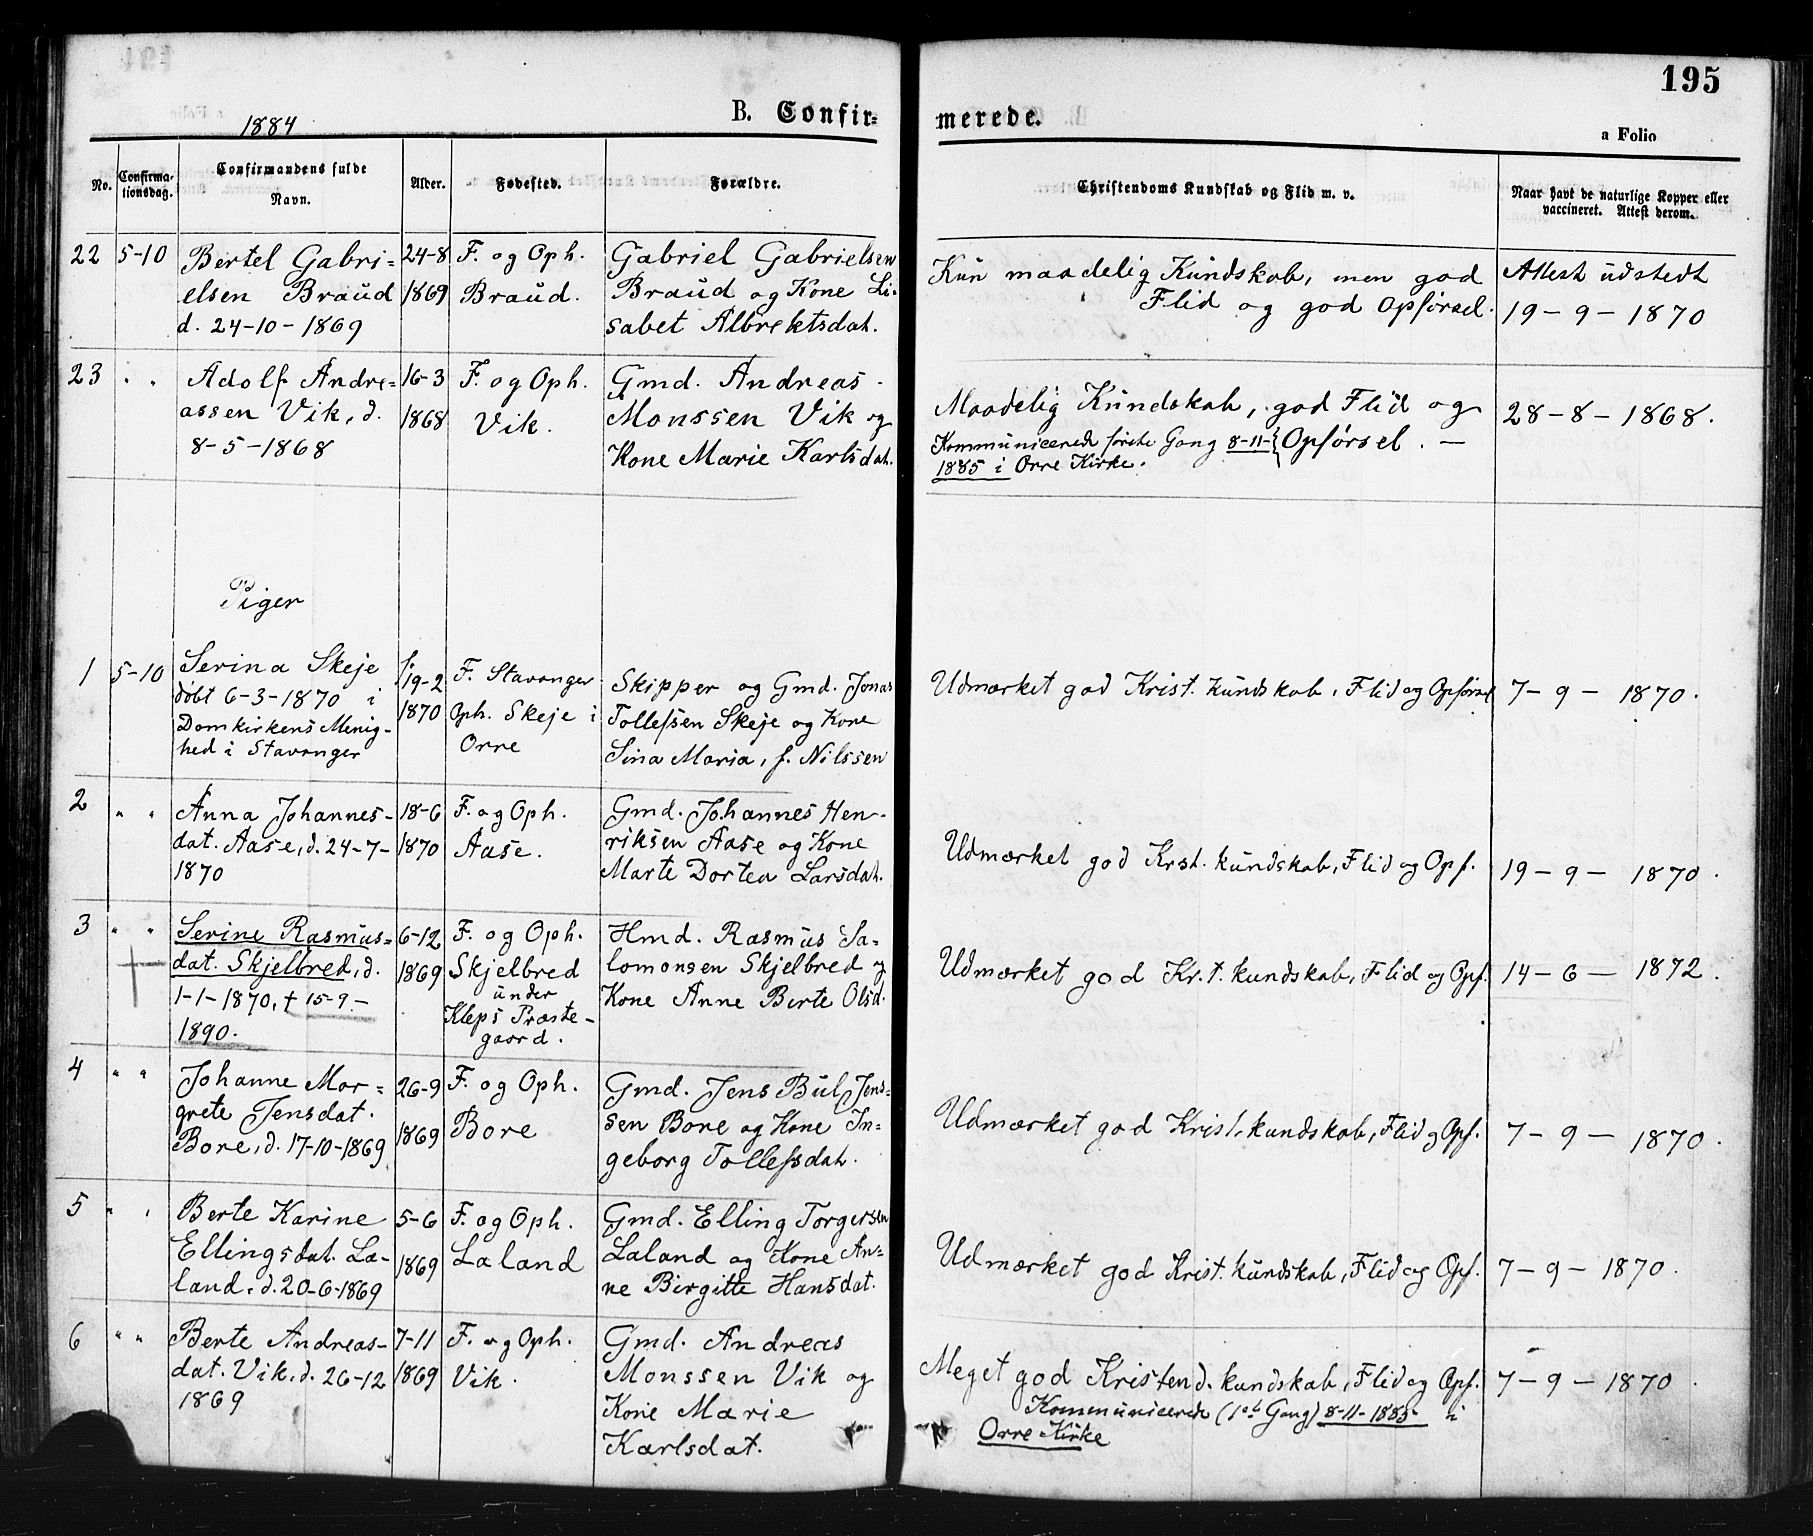 195
1884
B. Confirmerede.
a Folio
No.
Confirma-
tionsdag.
Confirmandens fulde
Navn.
Alder.
Fødested.
Forældre.
Christendoms Kundskab og Flid m. v.
Naar havt de naturlige Kopper eller
vaccineret. Attest derom.
22
5-10
Bertel Gabri=
elsen Braud
d. 24-10-1869
24-8
1869
F. og Oph.
Braud.
Gabriel Gabrielsen
Braud og Kone Li-
sabet Albrektsdat.
Kun maadelig Kundskab, men god
Flid og god Opførsel.
Attest udstedt
19-9-1870
23
" "
Adolf Andre=
assen Vik, d.
8-5-1868
16-3
1868
F. og Oph.
Vik.
Gmd. Andreas
Monssen Vik og
Kone Marie Karlsdat.
Maadelig Kundskab, god Flid og
Opførsel. —
Kommunicerede første Gang 8-11-
1885 i Orre Kirke.
28-8-1868.
Piger
1
5-10
Serina Skeje
døbt 6-3-1870 i
Domkirkens Menig-
hed i Stavanger
f.
19-2
1870
F. Stavanger
Oph. Skeje i
Orre
Skipper og Gmd. Jonas
Tollefsen Skeje og Kone
Sina Maria, f. Nilssen
Udmærket god Krist. kundskab, Flid og Opførsel
7-9-1870.
2
" "
Anna Johannes-
dat. Aase, d. 24-7-
1870
18-6
1870
F. og Oph.
Aase.
Gmd. Johannes Hen-
riksen Aase og Kone
Marte Dortea Larsdat.
Udmærket god Krst. kundskab, Flid og Opf.
19-9-1870.
3
" "
Serine Rasmus-
dat. Skjelbred, d.
1-1-1870, † 15-9-
1890.
6-12
1869
F. og Oph.
Skjelbred
under
Kleps Præste-
gaard.
Hmd. Rasmus Sa-
lomonsen Skjelbred og
Kone Anne Berte Olsd.
Udmærket god Kr.t. kundskab, Flid og Opf.
14-6-1872.
4
" "
Johanne Mar-
grete Jensdat.
Bore, d. 17-10-1869
26-9
1869
F. og Oph.
Bore
Gmd. Jens Bul Jens-
sen Bore og Kone In-
geborg Tollefsdat.
Udmærket god Krist. kundskab, Flid og Opf.
7-9-1870.
5
" "
Berte Karine
Ellingsdat. La-
land, d. 20-6-1869
5-6
1869
F. og Oph.
Laland
Gmd. Elling Torgersen
Laland og Kone An-
ne Birgitte Hansdat.
Udmærket god Krist. kundskab, Flid og Opf.
7-9-1870.
6
" "
Berte Andreas-
dat. Vik, d. 26-12
1869
7-11
1869
F. og Oph.
Vik.
Gmd. Andreas
Monssen Vik og
Kone Marie
Karlsdat.
Meget god Kristend. kundskab, Flid og Opf.
Kommunicerede (1ste Gang) 8-11-1885 i
Orre Kirke
7-9-1870.